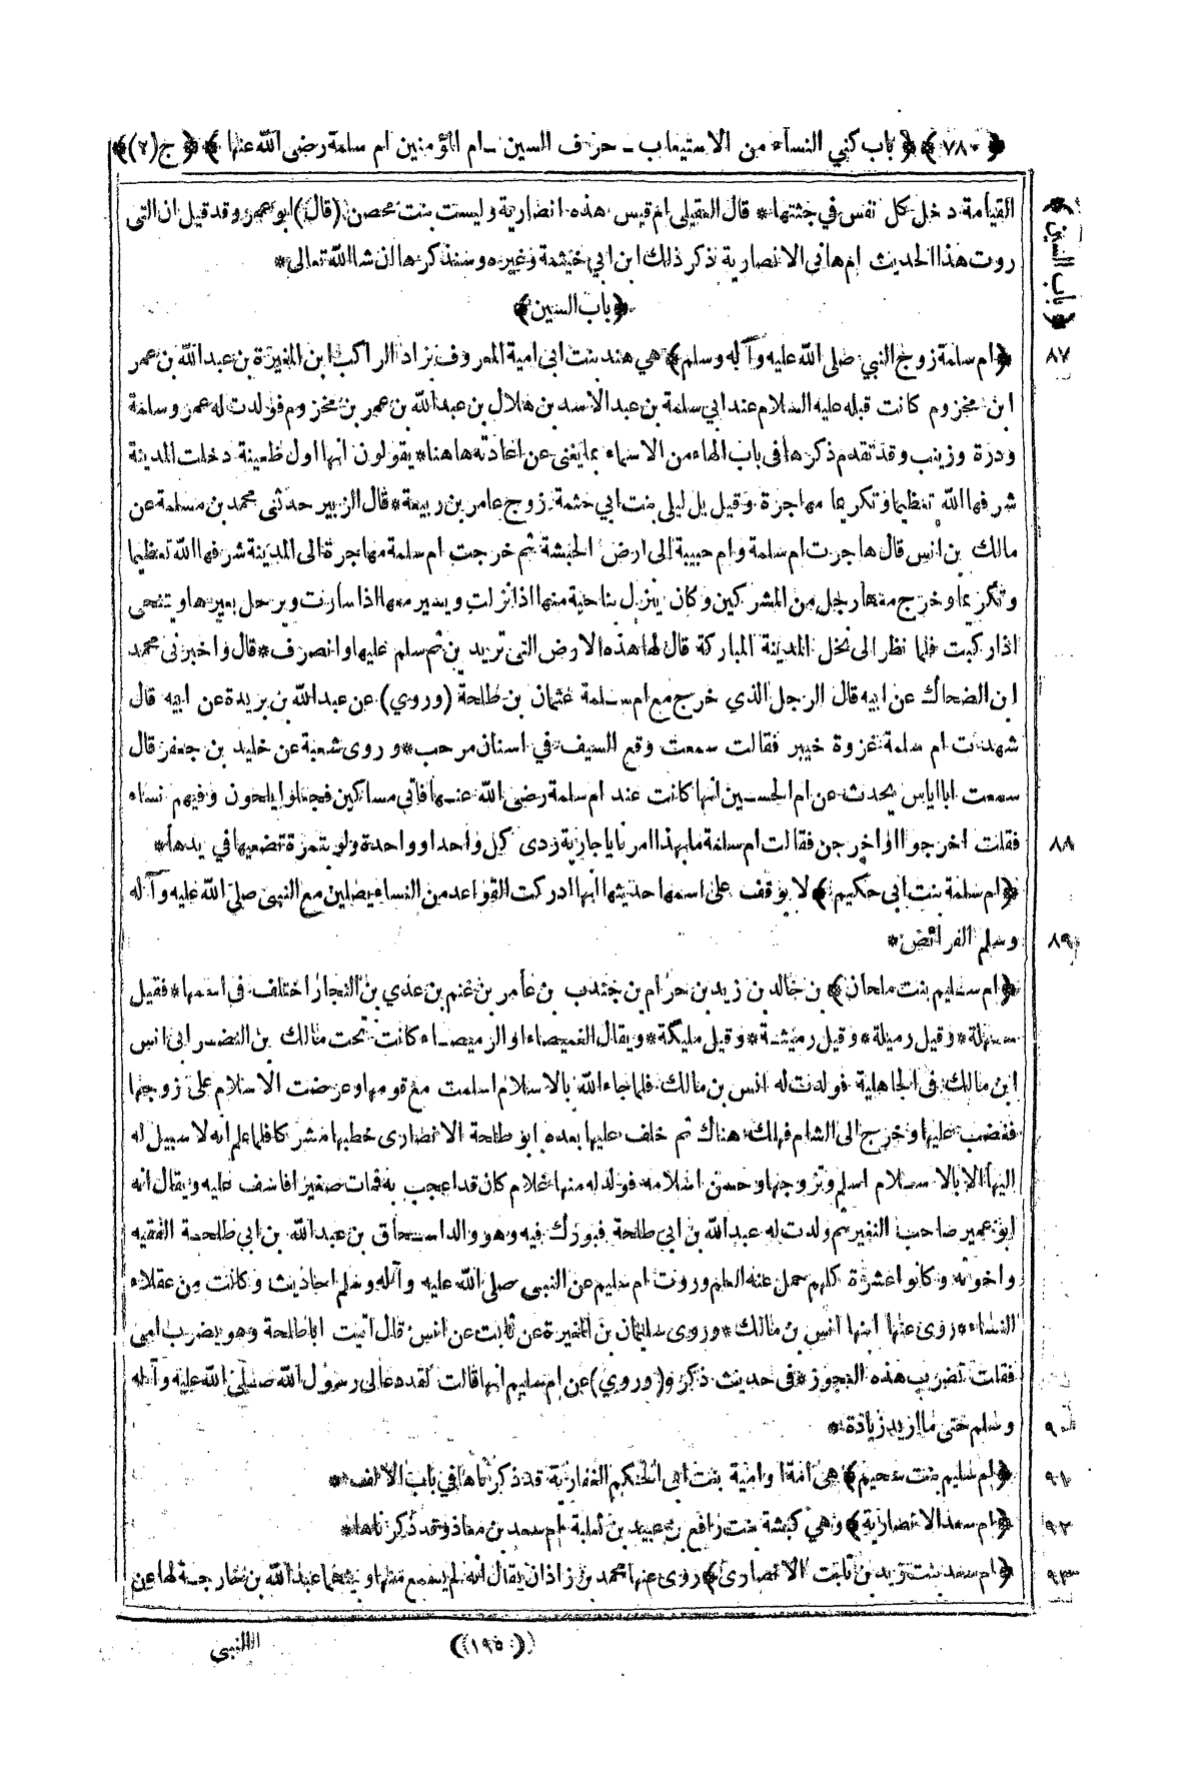 ﴿٧٨٠﴾ ﴿باب كنى النساء من الاستيعاب ـ حرف السين ـ ام المؤمنين ام سلمة رضى الله عنها﴾ ﴿ج(٢)﴾
﴿باب السين﴾
القيامة دخل كل نفس فى جثتها * قال العقيلى ام قيس هذه انصارية وليست بنت محصن (قال) ابو عمر وقد قيل ان التى
روت هذا الحديث ام هانى الانصارية ذكر ذلك ابن ابي خيثمة وغيره وسنذكرها ان شاالله تعالى *
﴿باب السين﴾
٨٧
﴿ام سلمة زوج النبي صلى الله عليه وآله وسلم﴾ هي هند بنت ابى امية المعروف بزاد الراكب ابن المغيرة بن عبدالله بن عمر
ابن مخزوم كانت قبله عليه السلام عند ابي سلمة بن عبدالاسد بن هلال بن عبدالله بن عمر بن مخزوم فولدت له عمر وسلمة
ودرة وزينب وقد تقدم ذكرها فى باب الهاء من الاسماء بما يغنى عن اعادته هاهنا * يقولون انها اول ظعينة دخلت المدينة
شرفها الله تعظيما وتكريما مهاجرة وقيل بل ليلى بنت ابي حثمة زوج عامر بن ربيعة * قال الزبير حدثنى محمد بن مسلمة عن
مالك بن انس قال هاجرت ام سلمة وام حبيبة الى ارض الحبشة ثم خرجت ام سلمة مهاجرة الى المدينة شرفها الله تعظيما
وتكريما وخرج معها رجل من المشركين وكان ينزل بناحية منها اذا نزلت ويسير معها اذا سارت ويرحل بعيرها ويتنحى
اذا ركبت فلما نظر الى نخل المدينة المباركة قال لها هذه الارض التى تريدين ثم سلم عليها وانصرف * قال واخبرنى محمد
ابن الضحاك عن ابيه قال الرجل الذي خرج مع ام سلمة عثمان بن طلحة (وروي) عن عبدالله بن بريدة عن ابيه قال
شهدت ام سلمة غزوة خيبر فقالت سمعت وقع السيف في اسنان مرحب * وروى شعبة عن خليد بن جعفر قال
سمعت ابا اياس يحدث عن ام الحسين انها كانت عند ام سلمة رضى الله عنها فاتى مساكين فجعلوا يلحون وفيهم نساء
فقلت اخرجوا او اخرجن فقالت ام سلمة ما بهذا امرنا يا جارية ردى كل واحد او واحدة ولو بتمرة تضعيها في يدها *
٨٨
﴿ام سلمة بنت ابى حكيم﴾ لا يوقف على اسمها حديثها انها ادركت القواعد من النساء يصلين مع النبى صلى الله عليه وآله
وسلم الفرائض *
٨٩
﴿ام سليم بنت ملحان﴾ بن خالد بن زيد بن حرام بن جندب بن عامر بن غنم بن عدي بن النجار اختلف فى اسمها * فقيل
سهلة * وقيل رميلة * وقيل رميثة * وقيل مليكة * ويقال الغميصاء او الرميصاء كانت تحت مالك بن النضر ابى انس
ابن مالك فى الجاهلية فولدت له انس بن مالك فلما جاء الله بالاسلام اسلمت مع قومها وعرضت الاسلام على زوجها
فغضب عليها وخرج الى الشام فهلك هناك ثم خلف عليها بعده ابو طلحة الانصارى خطبها مشركا فلما علم انه لا سبيل له
اليها الا بالاسلام اسلم وتزوجها وحسن اسلامه فولد له منها غلام كان قد اعجب به فمات صغيرا فاسف عليه ويقال انه
ابو عمير صاحب النغير ثم ولدت له عبدالله بن ابي طلحة فبورك فيه وهو والد اسحاق بن عبدالله بن ابي طلحة الفقيه
واخوته وكانوا عشرة كلهم حمل عنه العلم وروت ام سليم عن النبى صلى الله عليه وآله وسلم احاديث وكانت من عقلاء
النساء * روى عنها ابنها انس بن مالك * وروى سليمان بن المغيرة عن ثابت عن انس قال اتيت ابا طلحة وهو يضرب امى
فقلت تضرب هذه العجوز * فى حديث ذكره (وروي) عن ام سليم انها قالت لقد دعا لى رسول الله صلى الله عليه وآله
وسلم حتى ما اريد زيادة *
٩٠
﴿ام سليم بنت سحيم﴾ هى امة او امية بنت ابى الحكم الغفارية قد ذكرناها في باب الالف *
٩١
﴿ام سعد الانصارية﴾ وهي كبشة بنت رافع بن عبيد بن ثعلبة ام سعد بن معاذ وقد ذكرناها *
٩٢
﴿ام سعد بنت زيد بن ثابت الانصارى﴾ روى عنها محمد بن زاذان يقال انه لم يسمع منها وبينهما عبدالله بن خارجة لها عن
٩٣
((١٩٥))
النبى